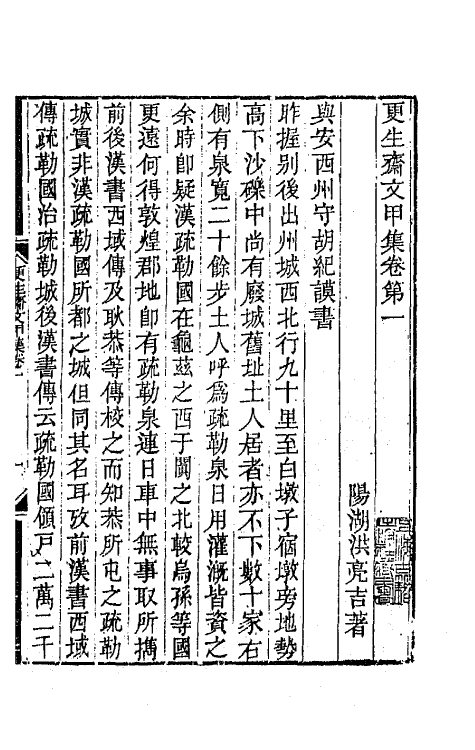 更生齋文甲集卷第一
陽湖洪亮吉著
與安西州守胡紀謨書
昨握别後出州城西北行九十里至白墩子宿墩旁地勢
高下沙礫中尚有廢城舊址土人居者亦不下數十家右
側有泉寬二十餘步土人呼爲疏勒泉日用灌溉皆資之
余時卽疑漢疏勒國在龜兹之西于闐之北較烏孫等國
更遠何得敦煌郡地卽有疏勒泉連日車中無事取所携
前後漢書西域傳及耿恭等傳校之而知恭所屯之疏勒
城實非漢疏勒國所都之城但同其名耳攷前漢書西域
傳疏勒國治疏勒城後漢書傳云疏勒國領戸二萬二千
更生齋文甲集卷一
一